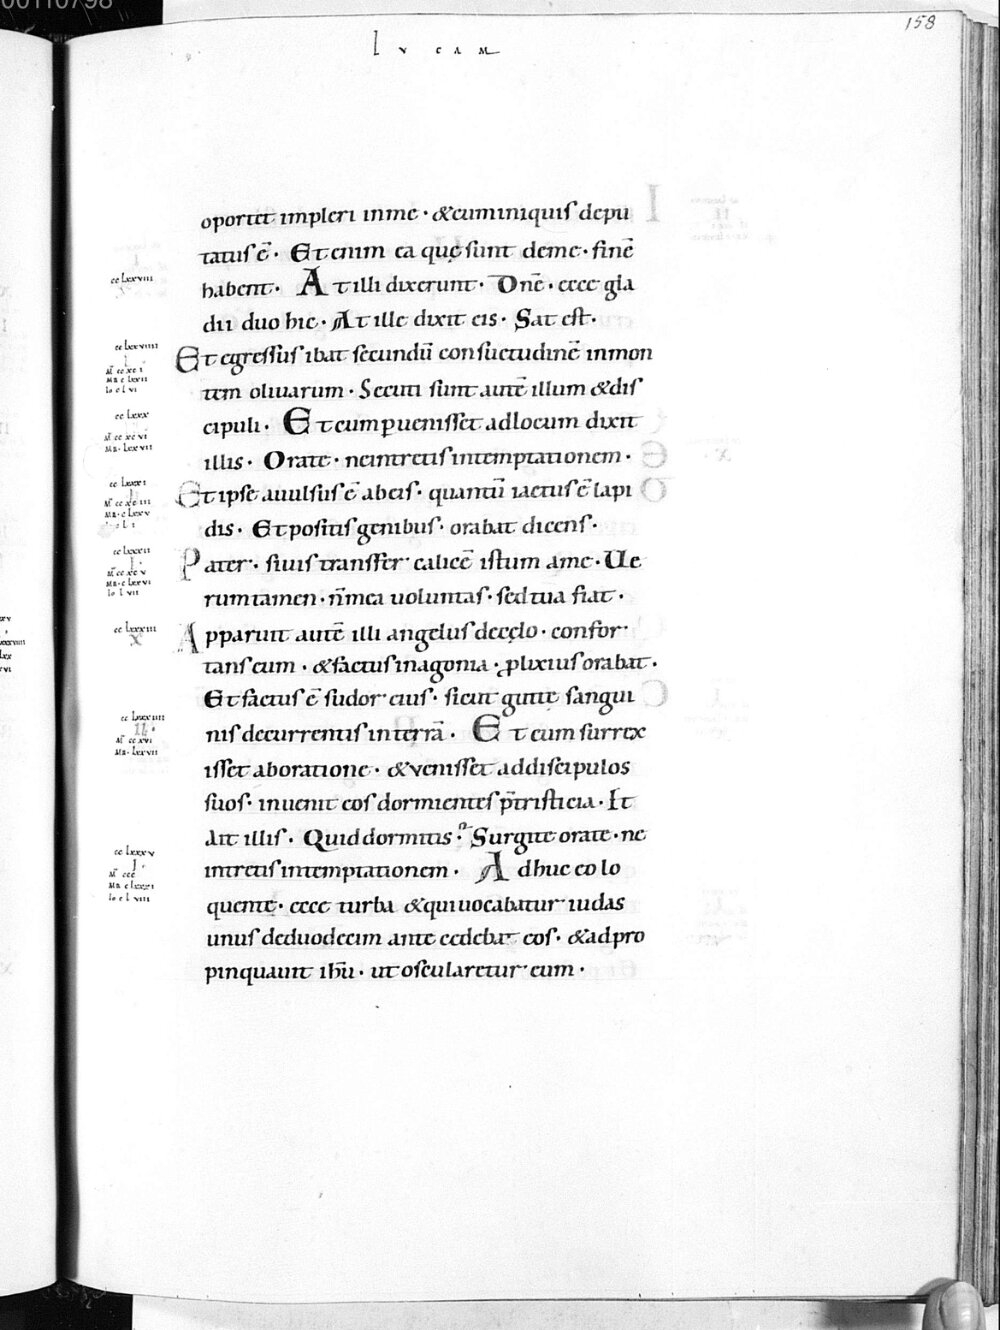 00110798
158
LVCAM
oportet impleri inme · &cuminiquis depu
tatus ē · Etenim ea quę sunt deme · finē
habent · At illi dixerunt · Dn̄e · ecce gla
dii duo hic · At ille dixit eis · Sat est ·
Et egressus ibat secundū consuetudinē inmon
tem oliuarum · Secuti sunt autē illum &dis
cipuli · Et cum puenisset adlocum dixit
illis · Orate · neintretis intemptationem ·
Et ipse auulsus ē abeis · quantū iactus ē lapi
dis · Et positis genibus · orabat dicens ·
Pater · siuis transfer calicē istum ame · Ue
rumtamen · n̄ mea uoluntas · sed tua fiat ·
Apparuit autē illi angelus decęlo · confor
tans eum · &factus inagonia · plixius orabat ·
Et factus ē sudor eius · sicut guttę sangui
nis decurrentis interrā · Et cum surrex
isset aboratione · &venisset addiscipulos
suos · inuenit eos dormientes p̄tristicia · Et
Ait illis · Quid dormitis · Surgite orate · ne
intretis intemptationem · Adhuc eo lo
quente · ecce turba &qui uocabatur iudas
unus deduodecim ante cedebat eos · &adpro
pinquauit ihū · ut oscularetur eum ·
cc lxxviii
x
cc lxxviiii
cc lxxx
cc lxxxi
cc lxxxii
cc lxxxiii
x
cc lxxxiiii
cc lxxxv